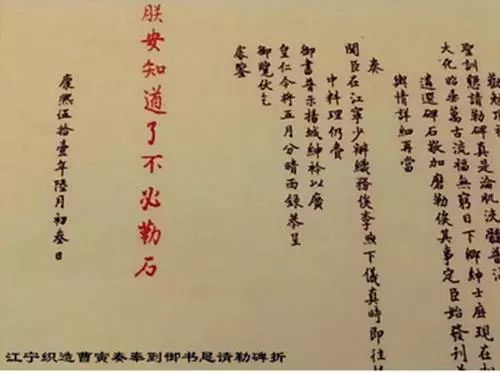 聖訓懇請勒碑真是淪肌浹髓普沾
大化昭垂萬古流福無窮目下鄉紳士庶現在
遴選碑石敬加磨勒俟其事定臣始發刊
輿情詳細再當
奏
聞臣在江寧少辦織務俟李煦下儀真時即往
中料理仍賫
御書普示揚城紳衿以廣
皇仁今將五月分晴雨錄恭呈
御覽伏乞
睿鑒
朕安知道了不必勒石
康熙伍拾壹年陸月初叁日
江宁织造曹寅奏奉到御书恳请勒碑折